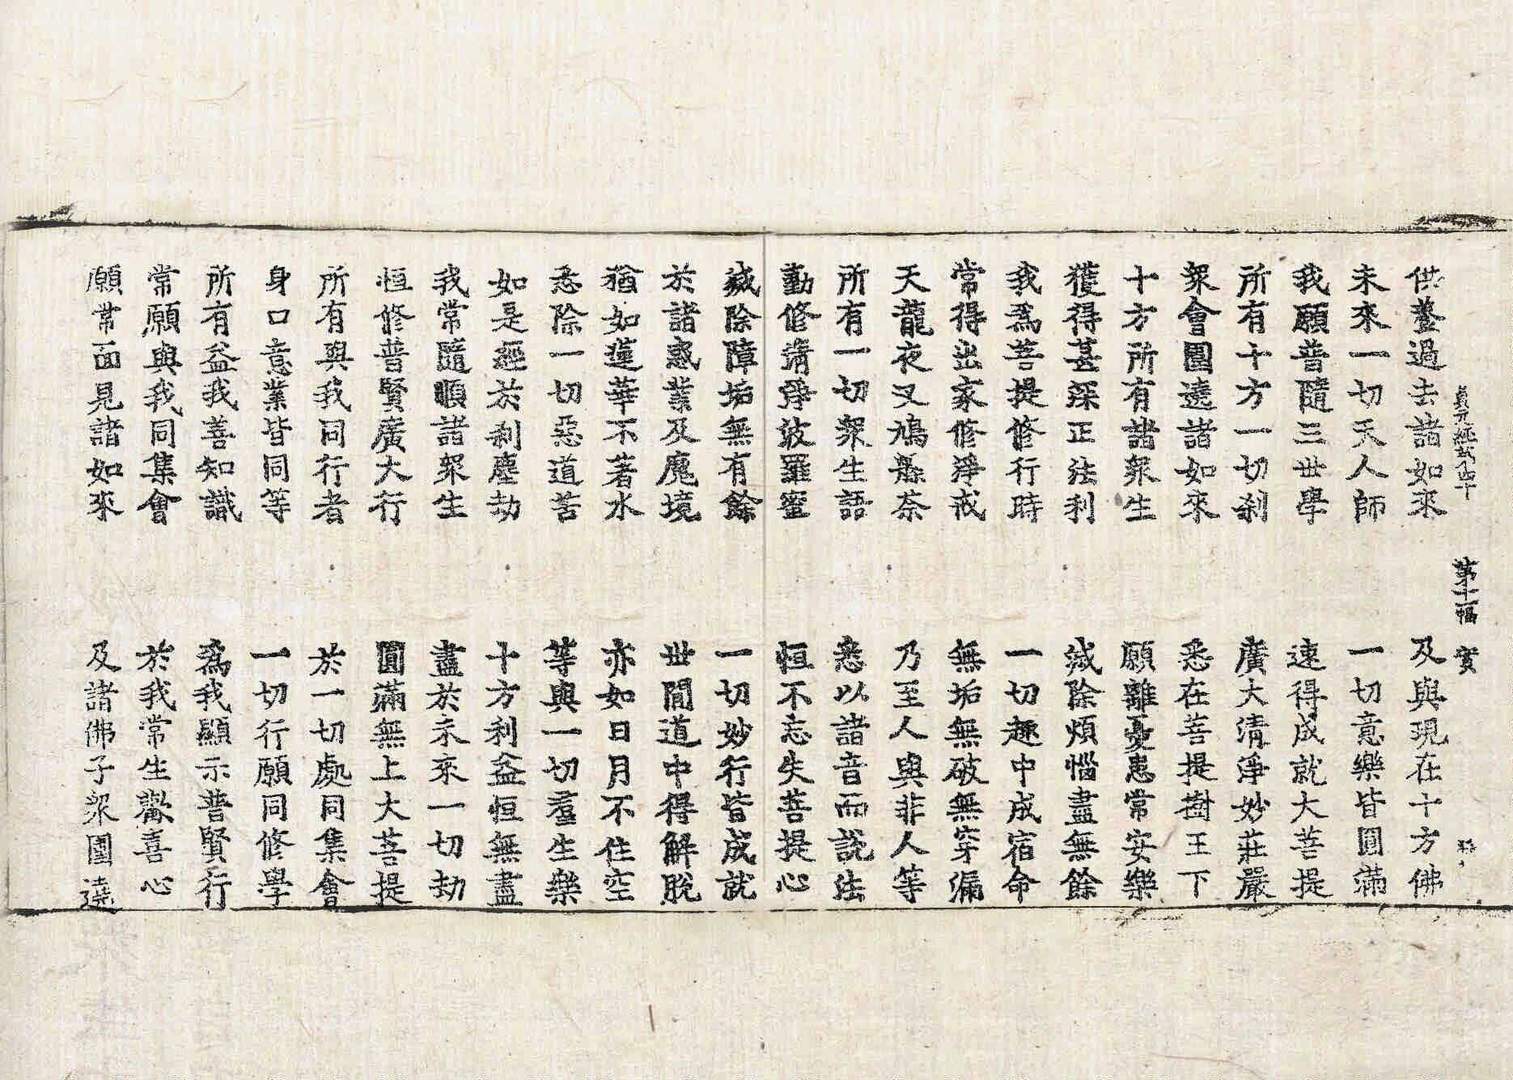 第十一幅 實
供養過去諸如來 及與現在十方佛
未來一切天人師 一切意樂皆圓滿
我願普隨三世學 速得成就大菩提
所有十方一切刹 廣大清淨妙莊嚴
衆會圍遶諸如來 悉在菩提樹王下
十方所有諸衆生 願離憂患常安樂
獲得甚深正法利 滅除煩惱盡無餘
我爲菩提修行時 一切趣中成宿命
常得出家修淨戒 無垢無破無穿漏
天龍夜叉鳩槃荼 乃至人與非人等
所有一切衆生語 悉以諸音而說法
勤修清淨波羅蜜 恒不忘失菩提心
滅除障垢無有餘 一切妙行皆成就
於諸惑業及魔境 世間道中得解脫
猶如蓮華不著水 亦如日月不住空
悉除一切惡道苦 等與一切羣生樂
如是經於刹塵劫 十方利益恒無盡
我常隨順諸衆生 盡於未來一切劫
恒修普賢廣大行 圓滿無上大菩提
所有與我同行者 於一切處同集會
身口意業皆同等 一切行願同修學
所有益我善知識 爲我顯示普賢行
常願與我同集會 於我常生歡喜心
願常面見諸如來 及諸佛子衆圍遶